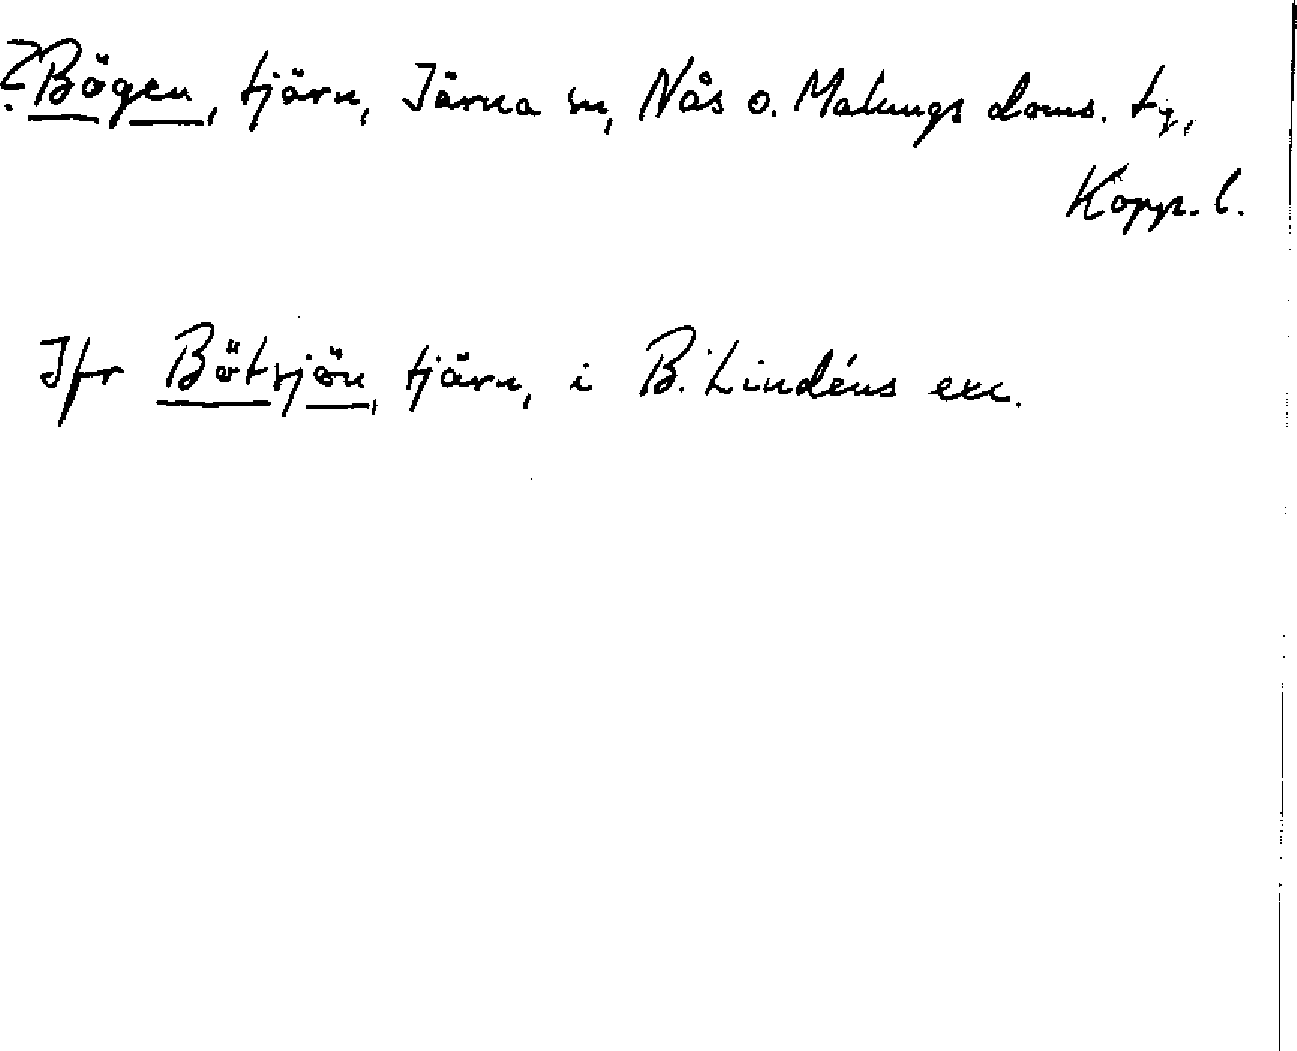 ?Bögen, tjärn, Järna sn, Nås o. Malungs doms. tg,
Kopp. l.
Jfr Bötsjön, tjärn, i B. Lindéns exc.